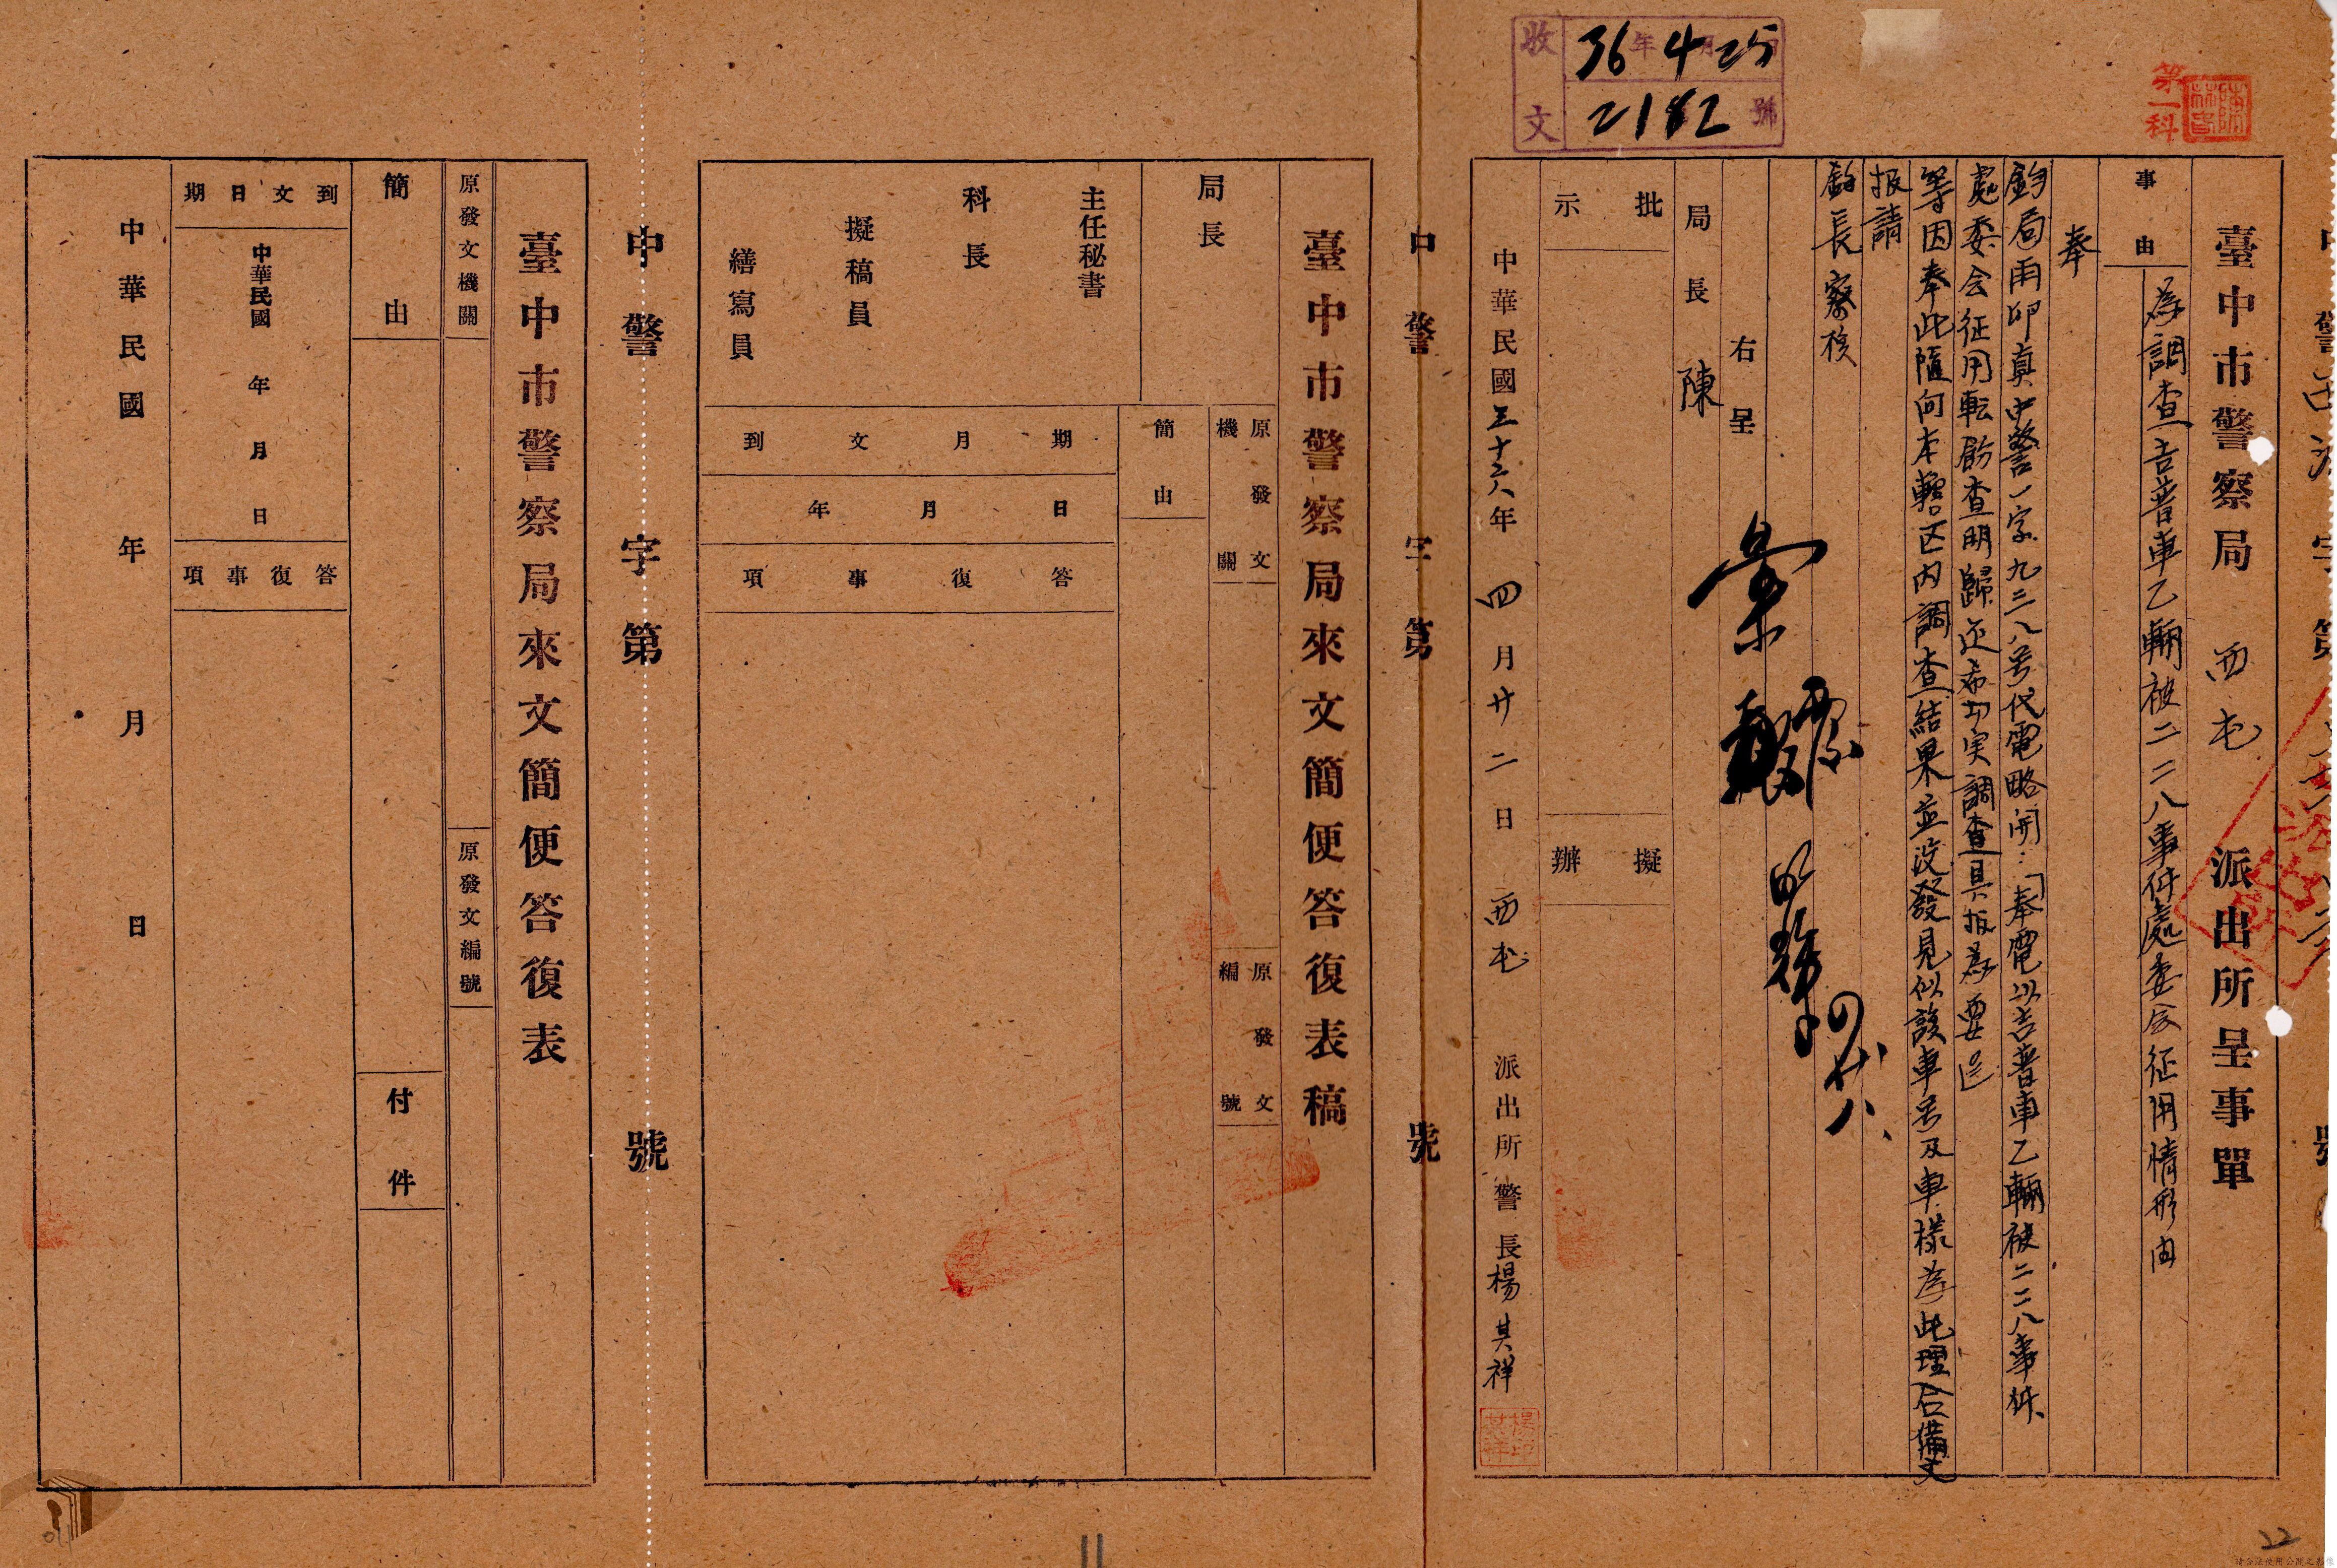 收文
36年4月25
2182號
第一科
臺中市警察局 西屯 派出所呈事單
事由
為調查吉普車乙輛被二二八事件處委会征用情形由
奉
鈞局雨卯真中警一字九三二八号代電略開：「奉電以吉普車乙輛被二二八事件
處委会征用転飭查明歸还希切实調查具报為要」
等因奉此隨向本轄区内調查結果並没發見似該車号及車樣為此理合備文
报請
鈞長察核
右呈
局長 陳
彙
四廿八
批示
擬辦
中華民國三十六年 四月廿二日 西屯 派出所警長楊其祥
中警字第 號
臺中市警察局來文簡便答復表稿
局長
主任秘書
科長
擬稿員
繕寫員
原發文機關
原發文編號
簡由
到文月期
年月日
答復事項
中警字第 號
臺中市警察局來文簡便答復表
原發文機關
原發文編號
簡由
付件
到文日期
中華民國 年 月 日
答復事項
中華民國 年 月 日
11
22